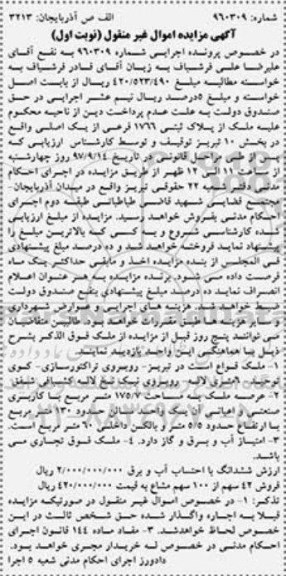 شماره: ۹۶۰۳۰۹ الف ص آذربایجان: ۳۲۱۳
آگهی مزایده اموال غیر منقول (نوبت اول)
در خصوص پرونده اجرایی شماره ۹۶۰۳۰۹ به نفع آقای
علیرضا علی فرشباف به زیان آقای قادر فرشباف به
خواسته مطالبه مبلغ ۴۲۰/۵۲۳/۴۹۰ ریال از بابت اصل
خواسته و مبلغ ۵درصد ریال نیم عشر اجرایی در حق
صندوق دولت به علت عدم پرداخت دین از ناحیه محکوم
علیه ملک از پلاک ثبتی ۱۷۶۶ فرعی از یک اصلی واقع
در بخش ۱۰ تبریز توقیف و توسط کارشناس ارزیابی که
قانونی در تاریخ ۹۷/۹/۱۴ روز چهارشنبه
از ساعت ۱۱ الی ۱۲ ظهر از طریق مزایده در اجرای احکام
مدنی دفتر شعبه ۲۲ حقوقی تبریز واقع در میدان آذربایجان-
مجتمع قضایی شهید قاضی طباطبائی طبقه دوم اجرای
احکام مدنی بفروش خواهد رسید. مزایده از مبلغ ارزیابی
شده کارشناسی شروع و به کسی که بالاترین مبلغ را
پیشنهاد نماید فروخته خواهد شد و ده درصد مبلغ پیشنهادی
فی المجلس از برنده مزایده اخذ و مابقی حداکثر یک ماه
فرصت داده می شود. برنده مزایده به هر عنوان اعلام
انصراف نماید ده درصد مبلغ پیشنهادی بنفع صندوق دولت
ضبط خواهد شد. هزینه های اجرایی و عوارض شهرداری
و سایر هزینه ها طبق مقررات خواهد بود. طالبین متقاضیان
می توانند پنج روز قبل از مزایده از ملک فوق الذکر بشرح
ذیل با هماهنگی این واحد بازدید نمایند.
۱- ملک فواع است در تبریز- روبروی تراکتورسازی- کوی
توحید ۸متری لاله- روبروی نیک
۲- عرصه ملک به مساحت ۱۷۵/۷ متر مربع با کاربری
صنعتی و اعیانی آن یک باب سالن به حدود ۱۳۰ متر مربع
با ارتفاع حدود ۵/۵ متر و بالکن داخلی ۶۰ متر مربع است.
۳- امتیاز آب و برق و گاز دارد. ۴- ملک فوق تجاری می
باشد.
ارزش ششدانگ با احتساب آب و برق ۲/۰۰۰/۰۰۰/۰۰۰ ریال
فروش ۴۲ سهم از ۱۰۰ سهم مشاع به قیمت ۴۲۰/۰۰۰/۰۰۰ ریال
تذکر: ۱- در خصوص اموال غیر منقول در صورتیکه مزایده
قبلا به اجاره واگذار شده حق شخص ثالث در این
خصوص لحاظ خواهدشد. ۳- مفاد ماده ۱۴۴ قانون اجرای
احکام مدنی در خصوص له خریدار مجری خواهد بود.
دادورز اجرای احکام مدنی شعبه ۵ اجرا